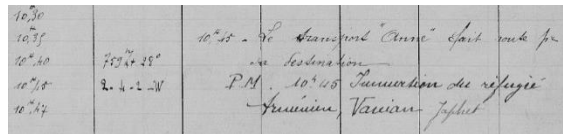 10h,30
10h,35 10h,45 - Le transport "Anne" fait route pr
10h,40 759 28° sa destination
10h,45 2-4-2-W P.M. 10h45 Immersion du réfugié
10h,47 Arménien, Vanian Japhet